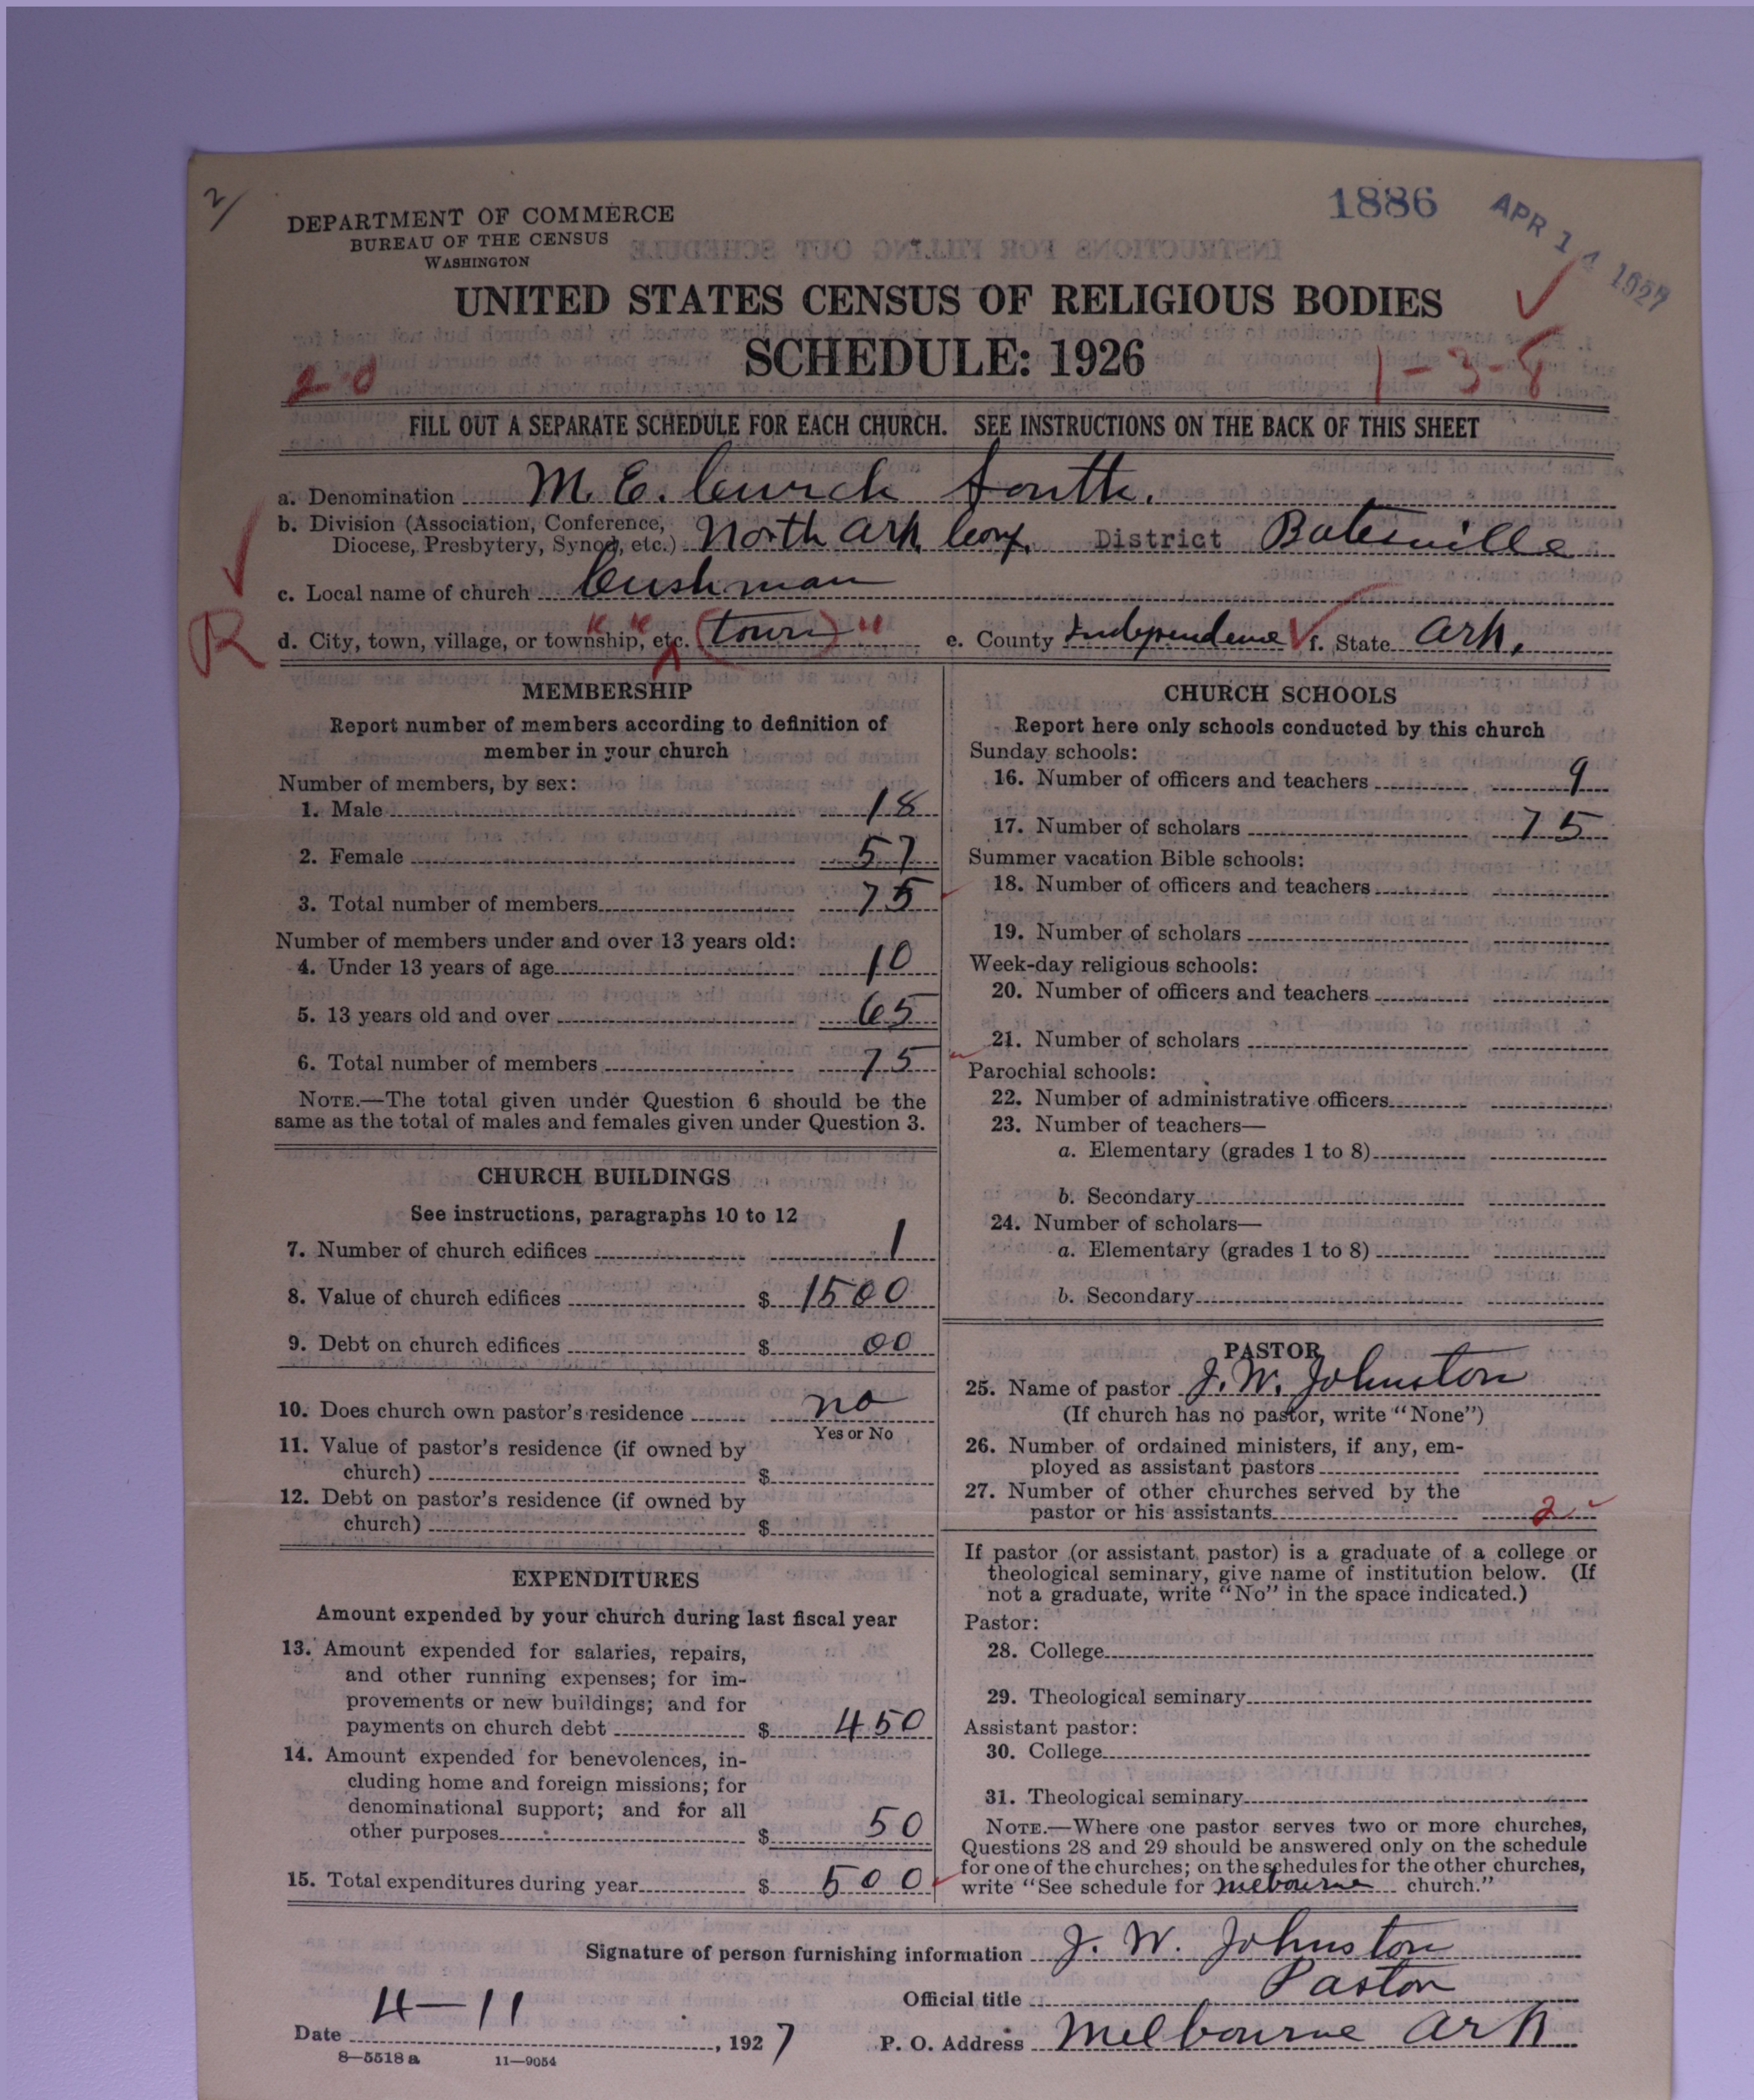 2/
1886
APR 14 1927
DEPARTMENT OF COMMERCE
BUREAU OF THE CENSUS
WASHINGTON
UNITED STATES CENSUS OF RELIGIOUS BODIES
SCHEDULE: 1926
20
1-3-8
FILL OUT A SEPARATE SCHEDULE FOR EACH CHURCH. SEE INSTRUCTIONS ON THE BACK OF THIS SHEET
a. Denomination M. E. Curch South.
b. Division (Association, Conference, Diocese, Presbytery, Synod, etc.) North Ark Conf. District Batesville
c. Local name of church Cushman
R
d. City, town, village, or township, etc. (town) e. County Independence f. State Ark.
MEMBERSHIP
Report number of members according to definition of
member in your church
Number of members, by sex:
1. Male 18
2. Female 57
3. Total number of members 75
Number of members under and over 13 years old:
4. Under 13 years of age 10
5. 13 years old and over 65
6. Total number of members 75
NOTE.—The total given under Question 6 should be the
same as the total of males and females given under Question 3.
CHURCH BUILDINGS
See instructions, paragraphs 10 to 12
7. Number of church edifices 1
8. Value of church edifices $ 1500
9. Debt on church edifices $ 00
10. Does church own pastor's residence no
Yes or No
11. Value of pastor's residence (if owned by
church) $
12. Debt on pastor's residence (if owned by
church) $
EXPENDITURES
Amount expended by your church during last fiscal year
13. Amount expended for salaries, repairs,
and other running expenses; for im-
provements or new buildings; and for
payments on church debt $ 450
14. Amount expended for benevolences, in-
cluding home and foreign missions; for
denominational support; and for all
other purposes $ 50
15. Total expenditures during year $ 500
CHURCH SCHOOLS
Report here only schools conducted by this church
Sunday schools:
16. Number of officers and teachers 9
17. Number of scholars 75
Summer vacation Bible schools:
18. Number of officers and teachers
19. Number of scholars
Week-day religious schools:
20. Number of officers and teachers
21. Number of scholars
Parochial schools:
22. Number of administrative officers
23. Number of teachers—
a. Elementary (grades 1 to 8)
b. Secondary
24. Number of scholars—
a. Elementary (grades 1 to 8)
b. Secondary
PASTOR
25. Name of pastor J. W. Johnston
(If church has no pastor, write "None")
26. Number of ordained ministers, if any, em-
ployed as assistant pastors
27. Number of other churches served by the
pastor or his assistants 2
If pastor (or assistant pastor) is a graduate of a college or
theological seminary, give name of institution below. (If
not a graduate, write "No" in the space indicated.)
Pastor:
28. College
29. Theological seminary
Assistant pastor:
30. College
31. Theological seminary
NOTE.—Where one pastor serves two or more churches,
Questions 28 and 29 should be answered only on the schedule
for one of the churches; on the schedules for the other churches,
write "See schedule for Melbourne church."
Signature of person furnishing information J. W. Johnston
Official title Pastor
Date 4-11, 1927 P. O. Address Melbourne Ark
8—5518 a 11—9054